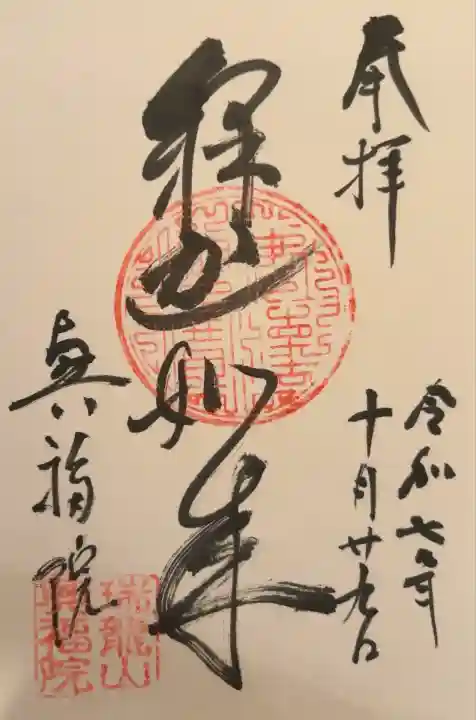 奉拝
令和七年
十月廿九日
釋迦如来
興福院
瑞龍山
興福院